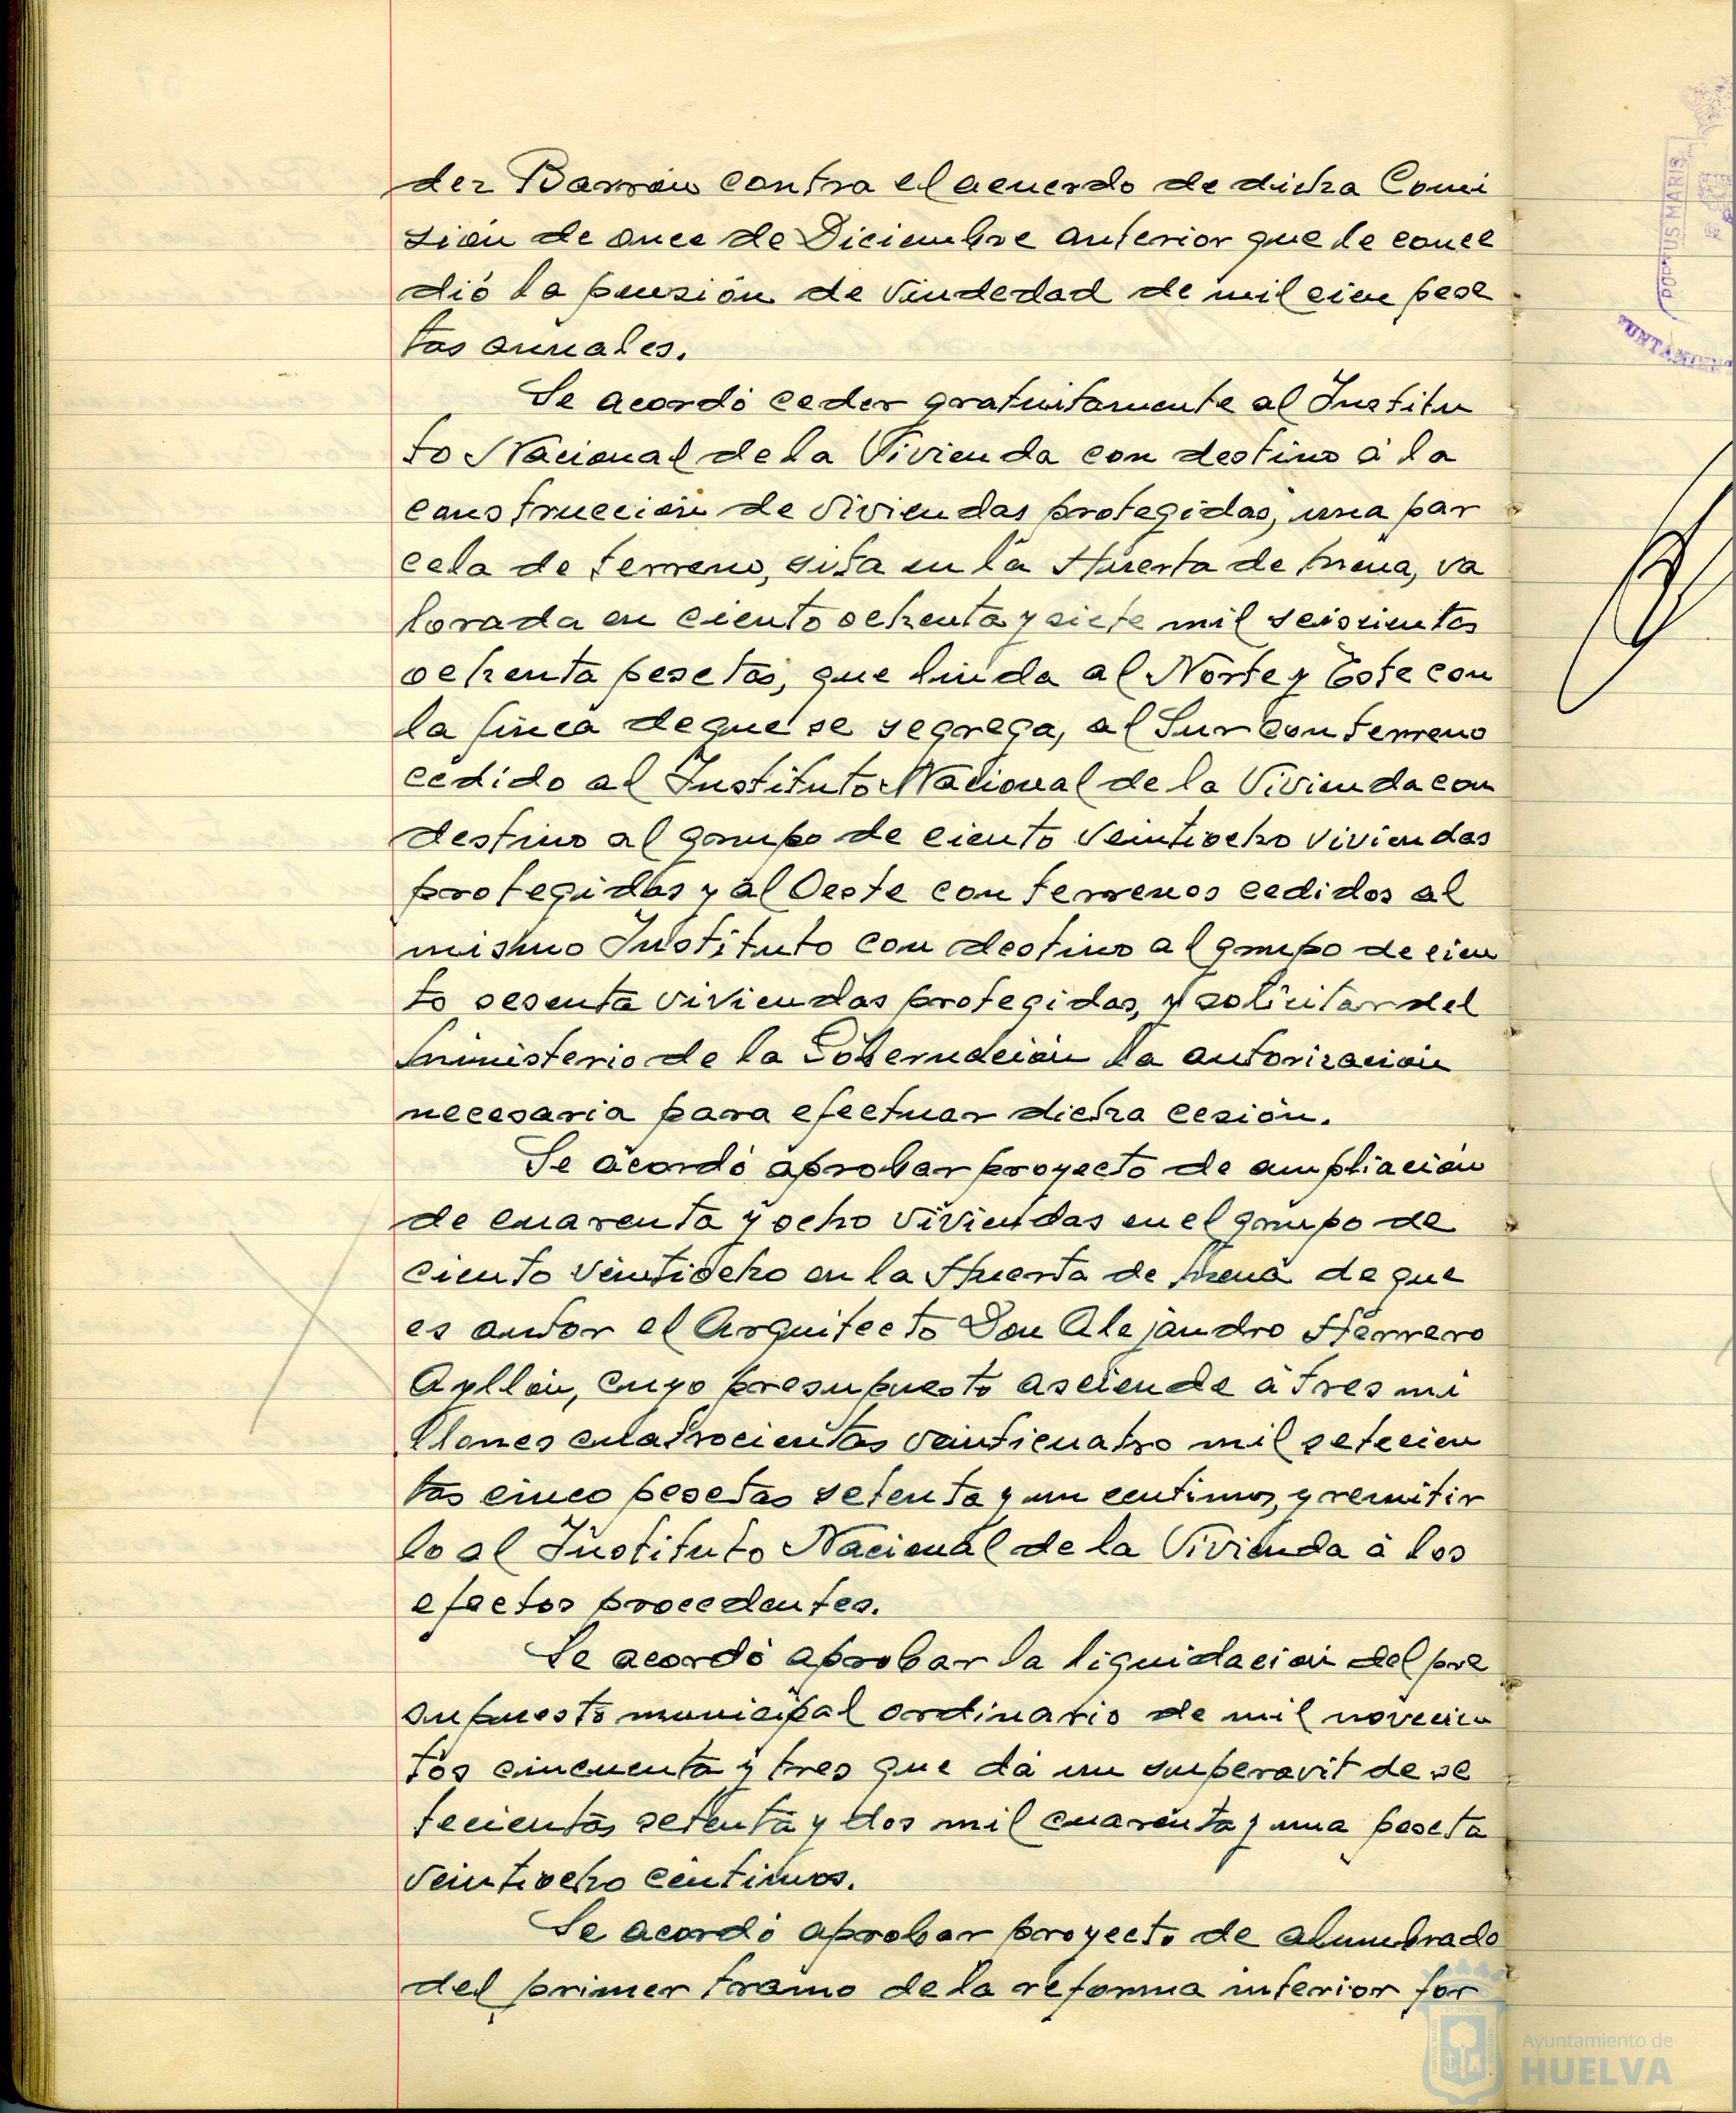 dez Barrón contra el acuerdo de dicha Comi
sión de once de Diciembre anterior que le conce
dió la pensión de viudedad de mil cien pese
tas anuales.
Se acordó ceder gratuitamente al Institu
to Nacional de la Vivienda con destino á la
construcción de viviendas protegidas, una par
cela de terreno, sita en la Huerta de Mena, va
lorada en ciento ochenta y siete mil seiscientas
ochenta pesetas, que linda al Norte y Este con
la finca de que se segrega, al Sur con terreno
cedido al Instituto Nacional de la Vivienda con
destino al grupo de ciento veintiocho viviendas
protegidas y al Oeste con terrenos cedidos al
mismo Instituto con destino al grupo de cien
to sesenta viviendas protegidas, y solicitar del
Ministerio de la Gobernación la autorización
necesaria para efectuar dicha cesión.
Se acordó aprobar proyecto de ampliación
de cuarenta y ocho viviendas en el grupo de
ciento veintiocho en la Huerta de Mena de que
es autor el Arquitecto Don Alejandro Herrero
Ayllón, cuyo presupuesto asciende á tres mi
llones cuatrocientas veinticuatro mil setecien
tas cinco pesetas setenta y un centimos, y remitir
lo al Instituto Nacional de la Vivienda á los
efectos procedentes.
Se acordó aprobar la liquidación del pre
supuesto municipal ordinario de mil novecien
tos cincuenta y tres que dá un superavit de se
tecientas setenta y dos mil cuarenta y una peseta
veintiocho centimos.
Se acordó aprobar proyecto de alumbrado
del primer tramo de la reforma interior for
PORTUS MARIS
UNTAMIEN
Ayuntamiento de
HUELVA